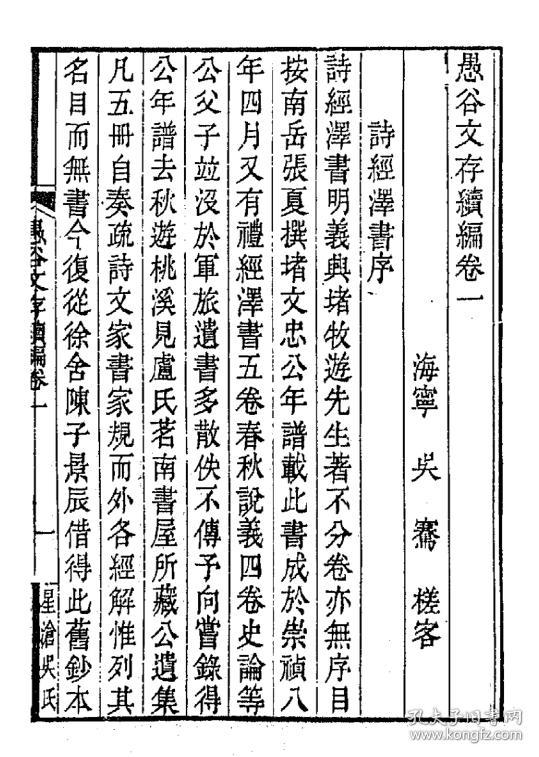 愚谷文存續編卷一
海寧 吳騫 槎客
詩經澤書序
詩經澤書明義興堵牧遊先生著不分卷亦無序目
按南岳張夏撰堵文忠公年譜載此書成於崇禎八
年四月又有禮經澤書五卷春秋說義四卷史論等
公父子並沒於軍旅遺書多散佚不傳予向嘗錄得
公年譜去秋遊桃溪見盧氏茗南書屋所藏公遺集
凡五冊自奏疏詩文家書家規而外各經解惟列其
名目而無書今復從徐舍陳子景辰借得此舊鈔本
愚谷文存續編卷一
一
星滄吳氏
孔夫子旧书网
www.kongfz.com